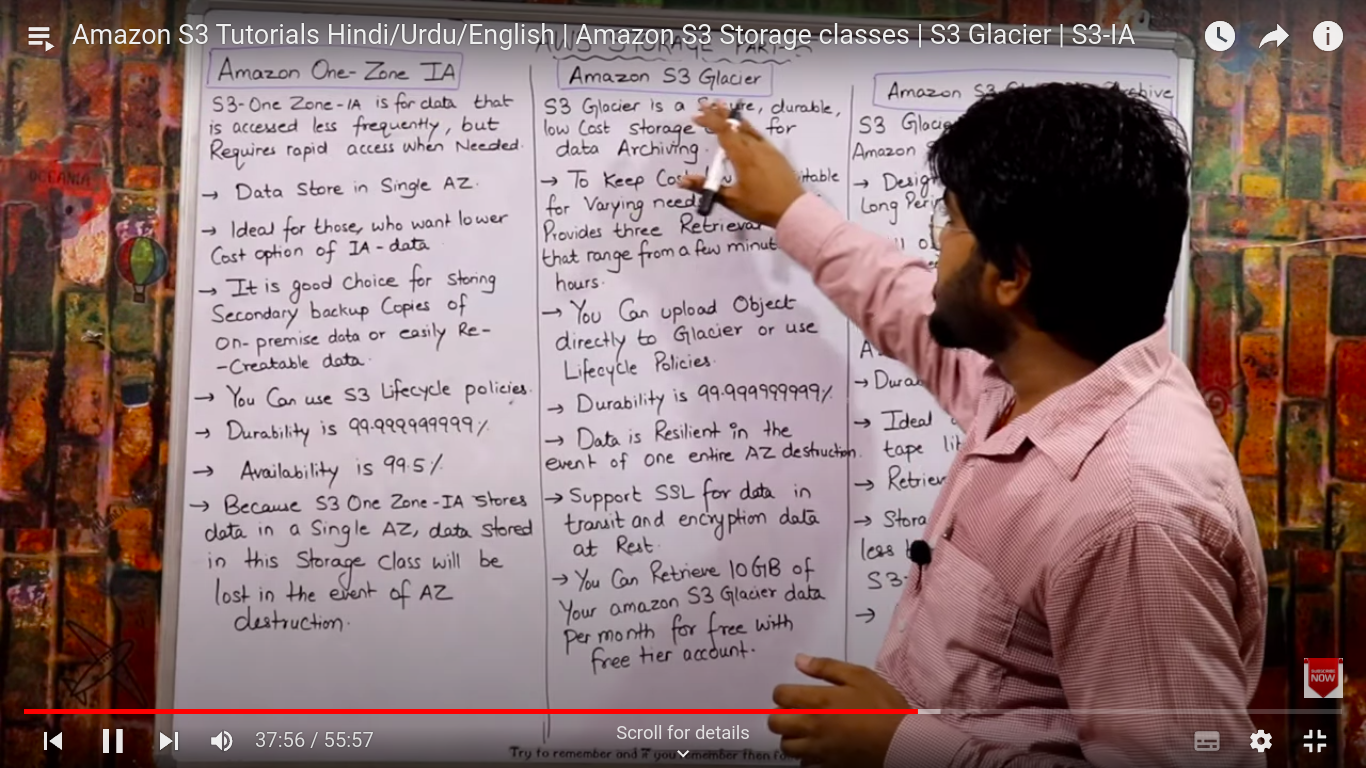 Amazon S3 Tutorials Hindi/Urdu/English | Amazon S3 Storage classes | S3 Glacier | S3-IA
Amazon One-Zone IA
S3-One Zone-IA is for data that
is accessed less frequently, but
Requires rapid access when Needed.
→ Data Store in Single AZ.
→ Ideal for those, who want lower
Cost option of IA-data
→ It is good choice for storing
Secondary backup Copies of
on-premise data or easily Re-
-Creatable data.
→ You Can use S3 Lifecycle policies.
→ Durability is 99.999999999%
→ Availability is 99.5%
→ Because S3 One Zone-IA stores
data in a Single AZ, data stored
in this Storage Class will be
lost in the event of AZ
destruction.
Amazon S3 Glacier
S3 Glacier is a durable,
low Cost storage for
data Archiving.
→ To Keep
for Varying needs
Provides three
that range from a few
hours.
→ You Can upload Object
directly to Glacier or use
Lifecycle Policies.
→ Durability is 99.999999999%
→ Data is Resilient in the
event of one entire AZ destruction.
→ Support SSL for data in
transit and encryption data
at Rest.
→ You Can Retrieve 10GB of
Your amazon S3 Glacier data
Per month for free with
free tier account.
Amazon S3 Archive
S3
Amazon
→
Long
→
→ Ideal
tape
→
→
less
S3-
→
OCEANIA
SUBSCRIBE
NOW
37:56 / 55:57
Scroll for details
Try to remember and if you remember then